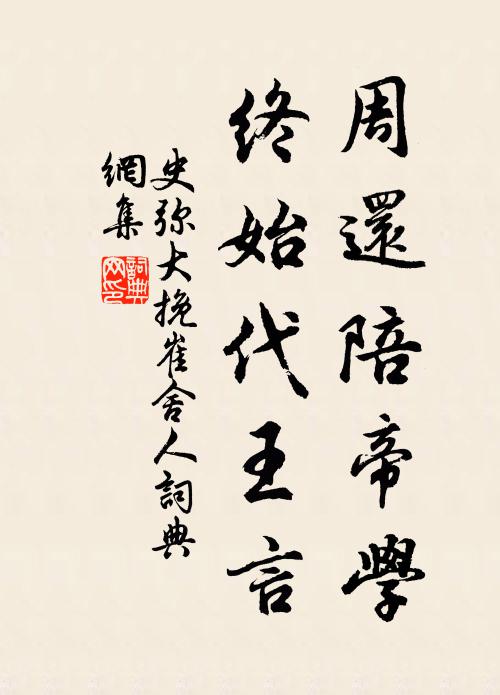 周還陪帝學
終始代王言
史弥大挽崔舍人詞典
網集
詞典網印